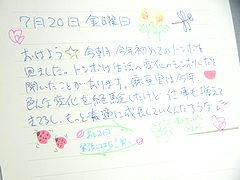 7月20日 金曜日
おはよう☆ 今朝、今年初めてのトンボを
見ました。トンボは生活の変化のシンボルだと
聞いたことがあります。麻亜里は今年
色んな変化を経験したけど、仕事も増えて
きてるし、もっと着実に成長していくんだろうな
あと2日